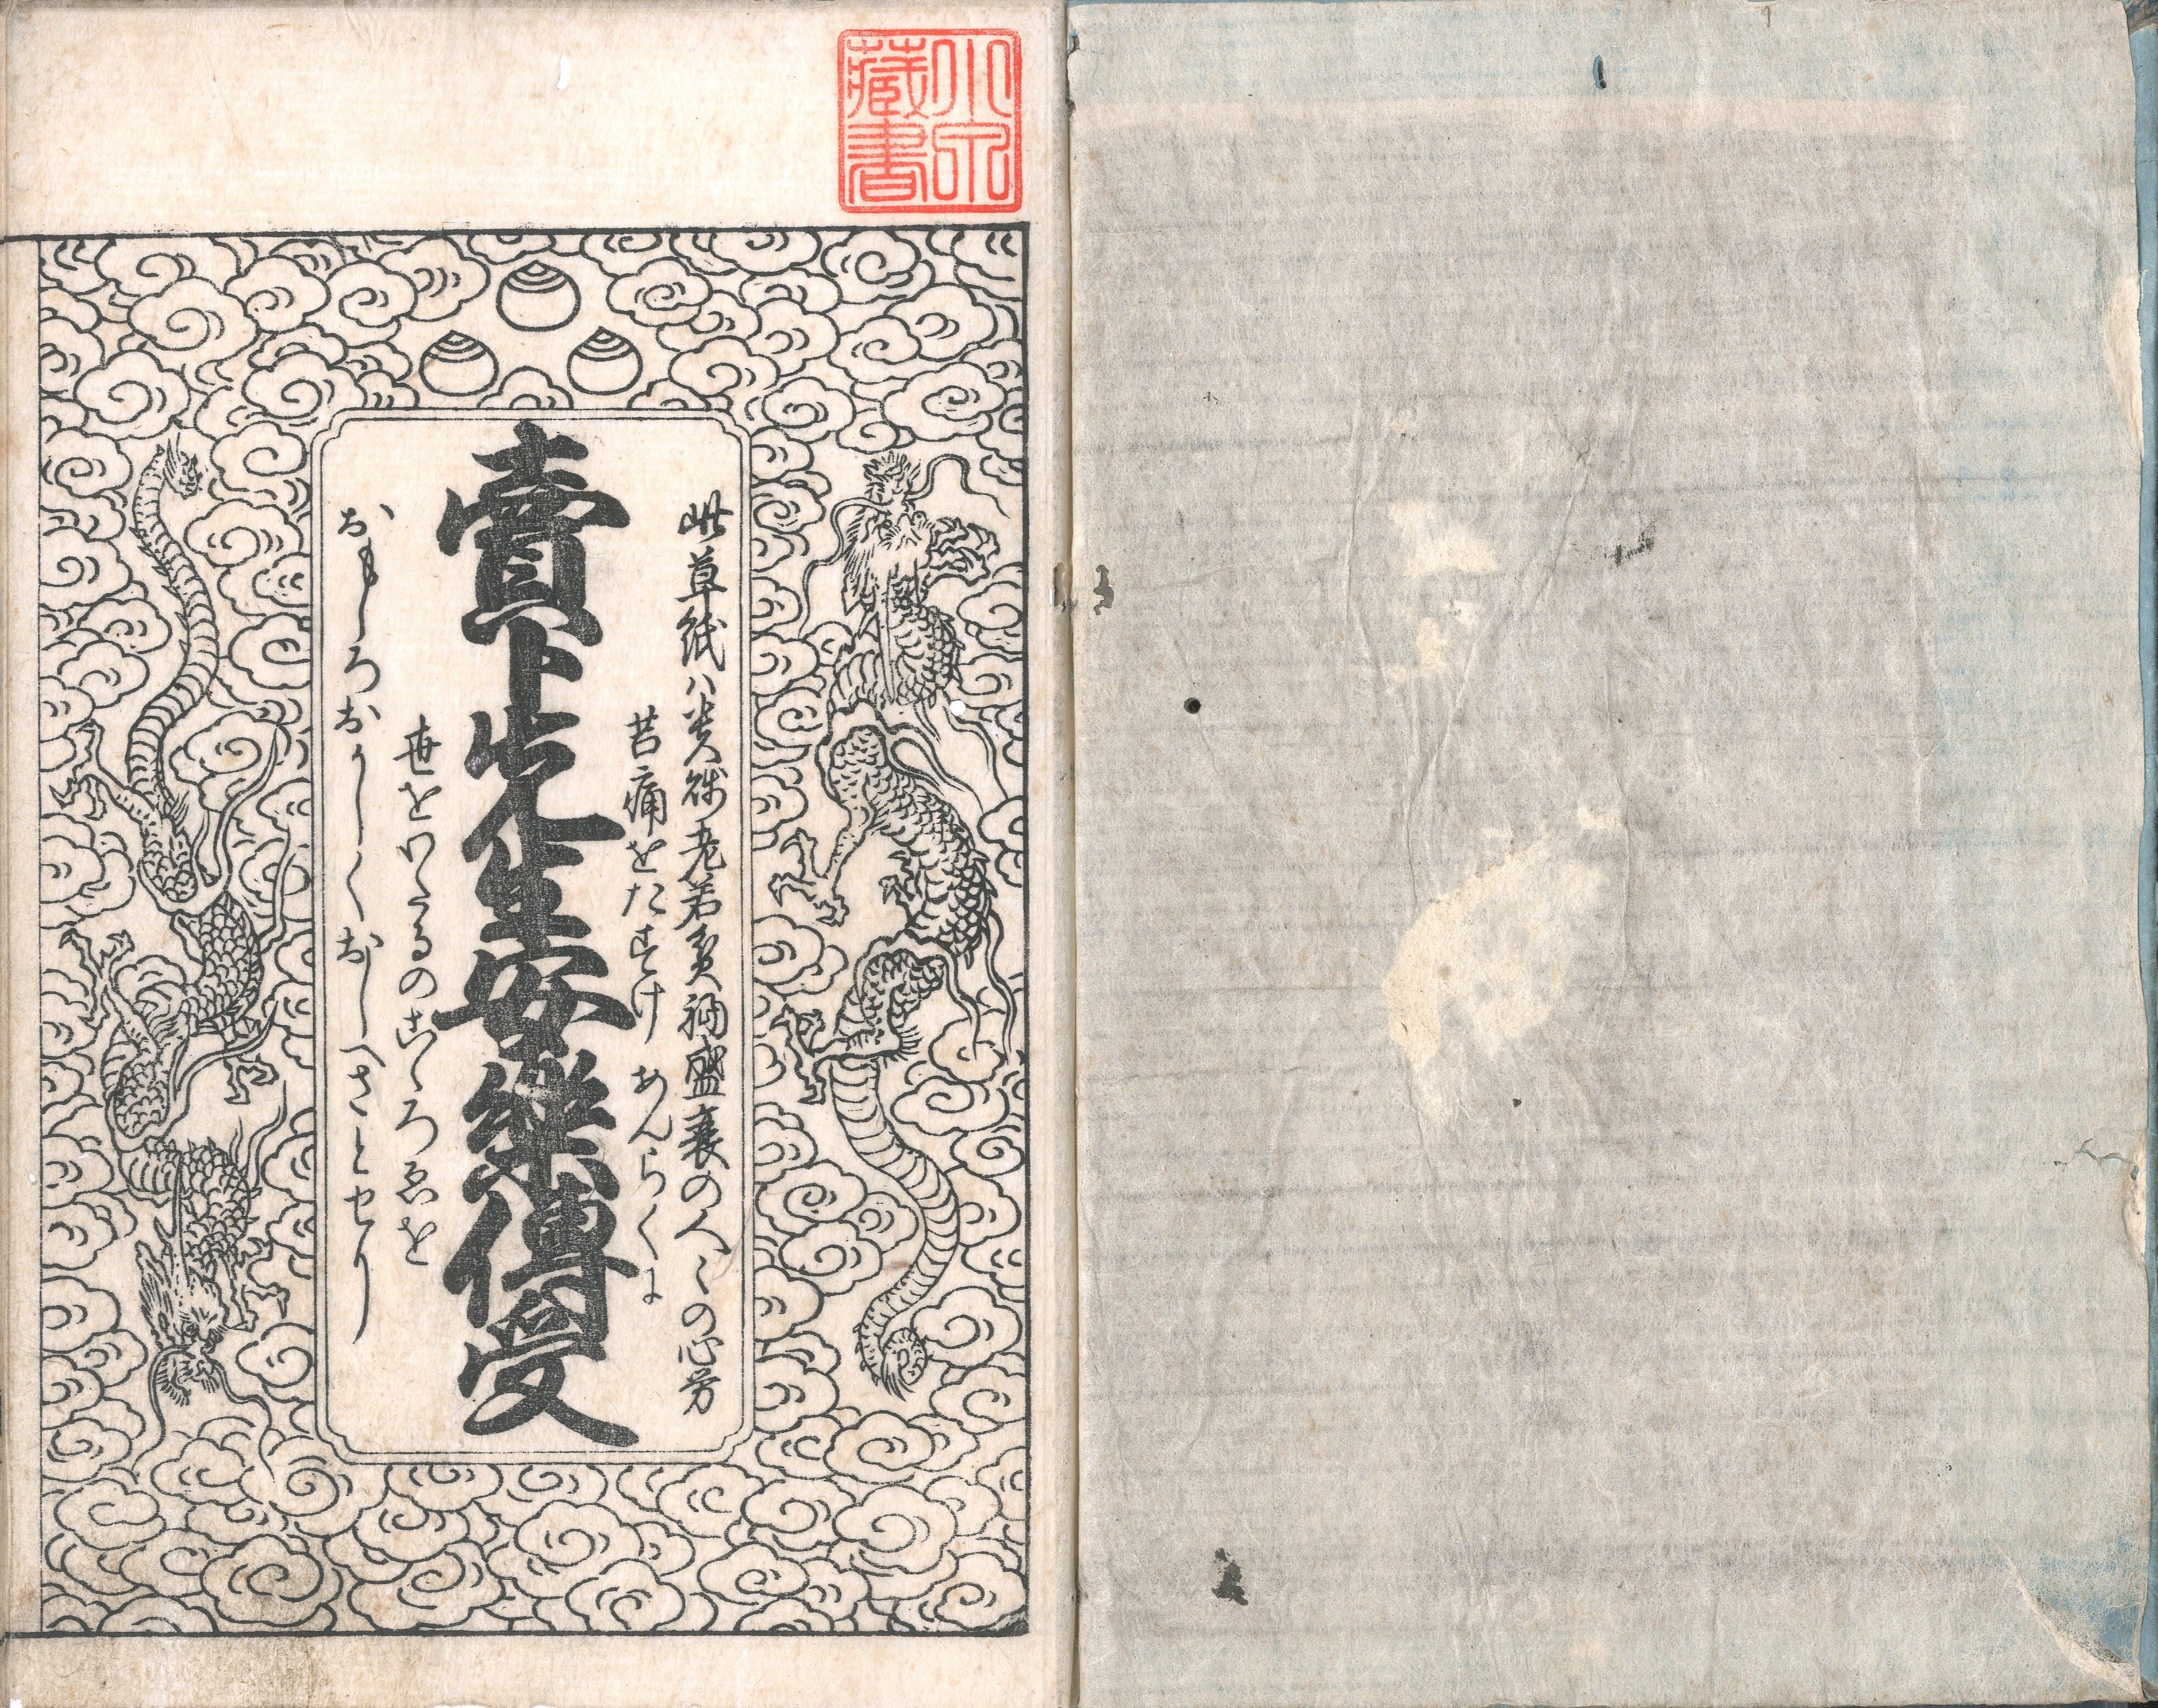 小泉
藏書
此草紙ハ貴賤老若貧福盛衰の人〻の心労
苦痛をたすけあんらくに
賣卜先生安樂傳受
世をわたるのこゝろゑを
おもしろおかしくおしへさとせり